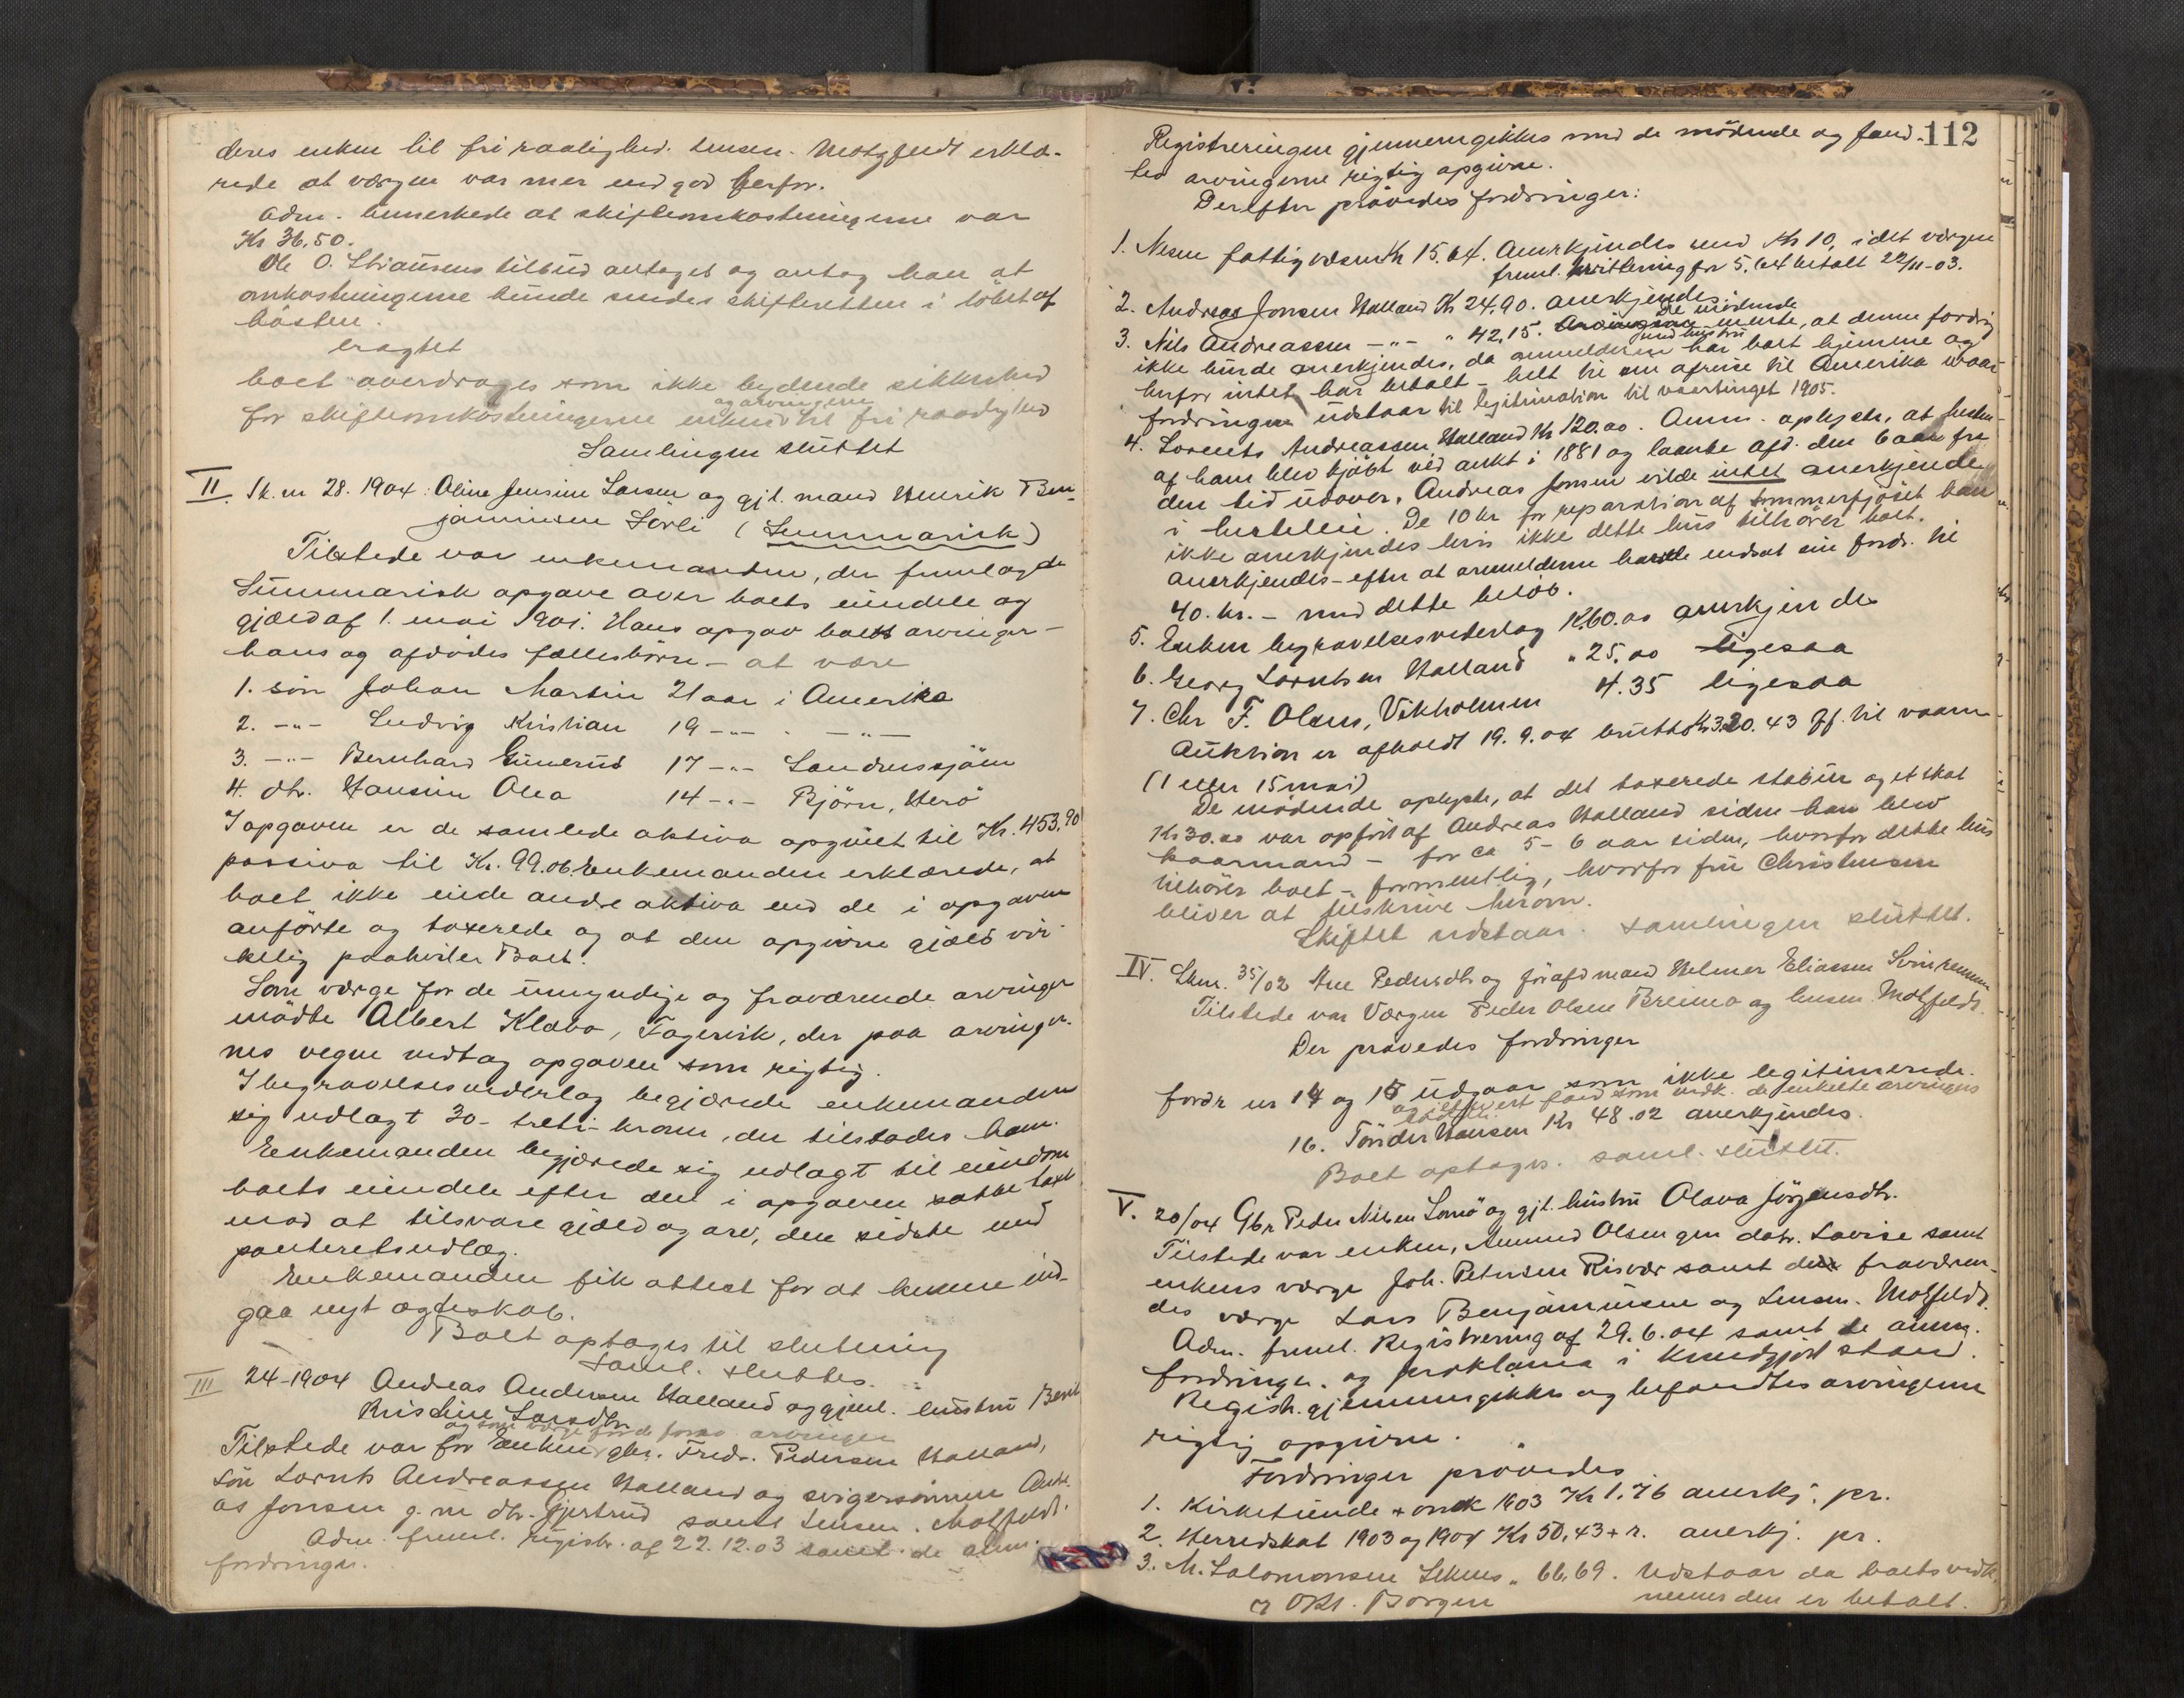 deres enken til fri raadighed. Lensm. Motzfeldt erklæ-
rede at værgen var mer end god herfor.
Adm. bemerkede at skifteomkostningerne var
Kr 36,50.
Ole O. Stiansens tilbud antoges og antog han at
omkostningerne kunde sendes skifteretten i löbet af
hösten.
eragtet
boet overdrages som ikke bydende sikkerhed
og arvingerne
for skifteomkostningerne enken til fri raadighed
Samlingen sluttet
II. Sk. nr 28. 1904: Oline Jensine Larsen og gjl. mand Henrik Ben-
jaminsen Sörli (Summarisk)
Tilstede var enkemanden, der fremlagde
Summarisk opgave over boets eiendele og
gjæld af 1. mai 1901. Hans opgav boets arvinger -
hans og afdödes fællesbörn - at være
1. sön Johan Martin 21 aar i Amerika
2. -"- Ludvig Kristian 19 -"- -"-
3. -"- Bernhard Gunerius 17 -"- Sandnessjöen
4. dtr. Hansine Olea 14 -"- Bjørn, Herö
I opgaven er de samlede aktiva opgivet til Kr. 453,90
passiva til Kr. 99.06. Enkemanden erklærede, at
boet ikke eiede andre aktiva end de i opgaven
anförte og taxerede og at den opgivne gjæld vir-
kelig paahviler Boet.
Som værge for de umyndige og fraværende arvinger
mödte Albert Klabo, Fagervik, der paa arvinger-
nes vegne vedtog opgaven som rigtig.
I begravelsesvederlag begjærede enkemanden
sig udlagt 30 - treti - kroner, der tilstodes ham.
Enkemanden begjærede sig udlagt til eiendom
boets eiendele efter den i opgaven satte taxt
mod at tilsvare gjæld og arv, den sidste med
panteretsudlæg.
Enkemanden fik attest for at kunne ind-
gaa nyt ægteskab.
Boet optages til slutning
saml. sluttes.
III 24-1904 Andreas Andersen Halland og gjenl. hustru Berit
Kristine Larsdtr
og som værge for de frav. arvinger
Tilstede var for Enken gbr. Fredr. Pedersen Halland,
sön Lornts Andreassen Halland og svigersönnen Andre-
as Jonsen g. m. dtr. Gjertrud samt Lensm. Motzfeldt.
Adm. freml. registr. af 22.12.03 samt de anm.
fordringer.
112
Registreringen gjennemgikkes med de mödende og fand-
tes arvingerne rigtig opgivne.
Derefter prövedes fordringer:
1. Nesne fattigvæsen Kr 15.64. Anerkjendes med Kr 10, idet værgen
freml. kvittering for 5.64 betalt 22/11-03.
2. Andreas Jonsen Halland Kr 24.90. anerkjendes.
De mödende
3. Nils Andreassen -"- " 42,15. Arvingerne mente, at denne fordring
med hustru
ikke burde anerkjendes, da anmelderen har boet hjemme og
herfor intet har betalt - helt til sin afreise til Amerika ivaar
fordringen udstaar til legitimation til vaartinget 1905.
4. Lorents Andreassen Halland Kr 120.00. Anm. oplyste, at hesten
af ham blev kjöbt ved aukt i 1881 og laante afd. den 6 aar fra
den tid udover. Andreas Jonsen vilde intet anerkjende
i hesteleie. De 10 kr for reparation af sommerfjöset kan
ikke anerkjendes hvis ikke dette hus tilhörer boet.
Anerkjendes - efter at anmelderen havde nedsat sin fordr. til
40. kr. - med dette belöb.
5. Enken begravelsesvederlag K. 60.00 anerkjendes
6. Georg Lorntsen Halland " 25.00 ligesaa
7. Chr F. Olsens, Vikholmen 4.35 ligesaa
Auktion er afholdt 19.9.04 brutto Kr 320.43 Gf. til vaaren
(1 eller 15 mai)
De mödende oplyste, at det taxerede stabur og et skot
Kr 30.00 var opfört af Andreas Halland siden han blev
kaarmand - for ca 5-6 aar siden, hvorfor dette hus
tilhörer boet - formentlig, hvorfor fru Christensen
bliver at tilskrive herom.
Skiftet udstaar. Samlingen sluttet.
IV. Skm. 35/02 Ane Pedersdtr og föräfd mand Helmer Eliassen
Tilstede var Værgen Peder Olsen Breimo og lensm. Motzfeldt.
Der prövedes fordringer
fordr nr 14 og 15 udgaar som ikke legitimerede.
16. Tönder Hansen Kr 48.02 anerkjendes.
Boet optages. saml. sluttet.
V. 20/04 Gbr. Peder Nilsen Lomö og gjl. hustru Olava Jörgensdtr.
Tilstede var enken, Amund Olsen gm datr. Lovise samt
enkens værge Joh. Petersen Risvær samt de fraværen-
des værge Lars Benjaminsen og Lensm. Motzfeldt.
Adm. freml. Registrering af 29.6.04 samt de anm.
fordringer. og proklama i kundgjort stand.
Registr. gjennemgikkes og befandtes arvingerne
rigtig opgivne.
Fordringer prövedes
1. Kirketiende + omk 1903 Kr 1.76 anerkj. pr.
2. Herredskat 1903 og 1904 Kr 50,43 + r. anerkj. pr.
3. M. Salomonsen " 66.69. Udstaar da boets vedk.
v OKr. Borgen menes den er betalt.